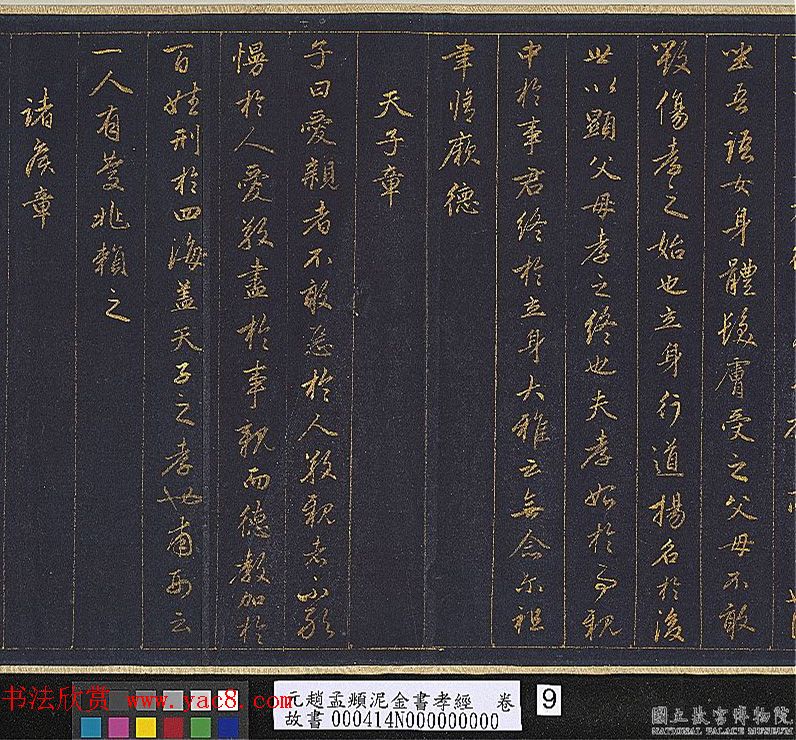 坐吾語女身體髮膚受之父母不敢
毀傷孝之始也立身行道揚名於後
世以顯父母孝之終也夫孝始於事親
中於事君終於立身大雅云無念尔祖
聿脩厥德
天子章
子曰愛親者不敢惡於人敬親者不敢
慢於人愛敬盡於事親而德教加於
百姓刑於四海盖天子之孝也甫刑云
一人有慶兆賴之
諸侯章
书法欣赏 www.yac8.com
元趙孟頫泥金書孝經 卷
故書000414N000000000
9
國立故宮博物院
NATIONAL PALACE MUSEUM